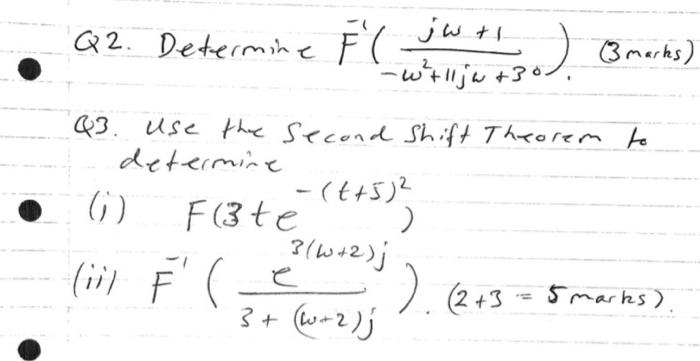 Q2. Determine F⁻¹( (jω + 1) / (-ω² + 11jω + 30) ). (3 marks)
Q3. Use the Second Shift Theorem to
determine
(i) F(3te^(-(t+5)²))
(ii) F⁻¹( e^(3(ω+2)j) / (3 + (ω+2)j) ). (2+3 = 5 marks).